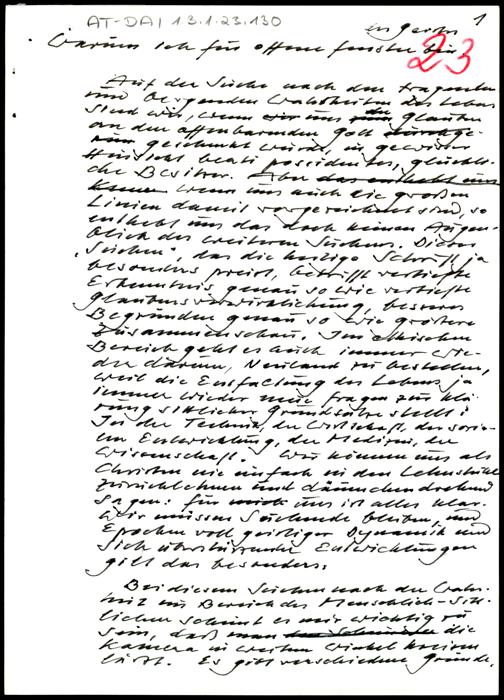 AT-DAI 13.1.23.130
1
in gester
23
Warum ich für offene Fenster bin
Auf der Suche nach den tragenden
und bergenden Wahrheiten des Lebens
sind wir, wenn uns der Glauben
an den offenbarenden Gott
geschenkt wurde, in gewisser
Hinsicht beati possidentes, glückli-
che Besitzer. Aber das enthebt uns
wenn uns auch die großen
Linien damit vorgezeichnet sind, so
enthebt uns das doch keinen Augen-
blick des weiteren Suchens. Dieses
"Suchen", das die heilige Schrift ja
besonders preist, betrifft vertiefte
Erkenntnis genau so wie vertiefte
Glaubensverwirklichung, besseres
Begründen genau so wie größere
Zusammenschau. Im ethischen
Bereich geht es auch immer wie-
der darum, Neuland zu bestellen,
weil die Entfaltung des Lebens ja
immer wieder neue Fragen zur Klä-
rung sittlicher Grundsätze stellt:
In der Technik, der Wirtschaft, der sozia-
len Entwicklung, der Medizin, der
Wissenschaft. Wir können uns als
Christen nie einfach in den Lehnstuhl
zurücklehnen und däumchendrehend
sagen: für uns ist alles klar.
Wir müssen Suchende bleiben, und
Epochen voll geistiger Dynamik und
sich überstürzender Entwicklungen
gilt das besonders.
Bei diesem Suchen nach der Wahr-
heit im Bereich des Menschlich-Sitt-
lichen scheint es mir wichtig zu
sein, daß man die
Kamera in weitem Winkel kreisen
läßt. Es gibt verschiedene Gründe,